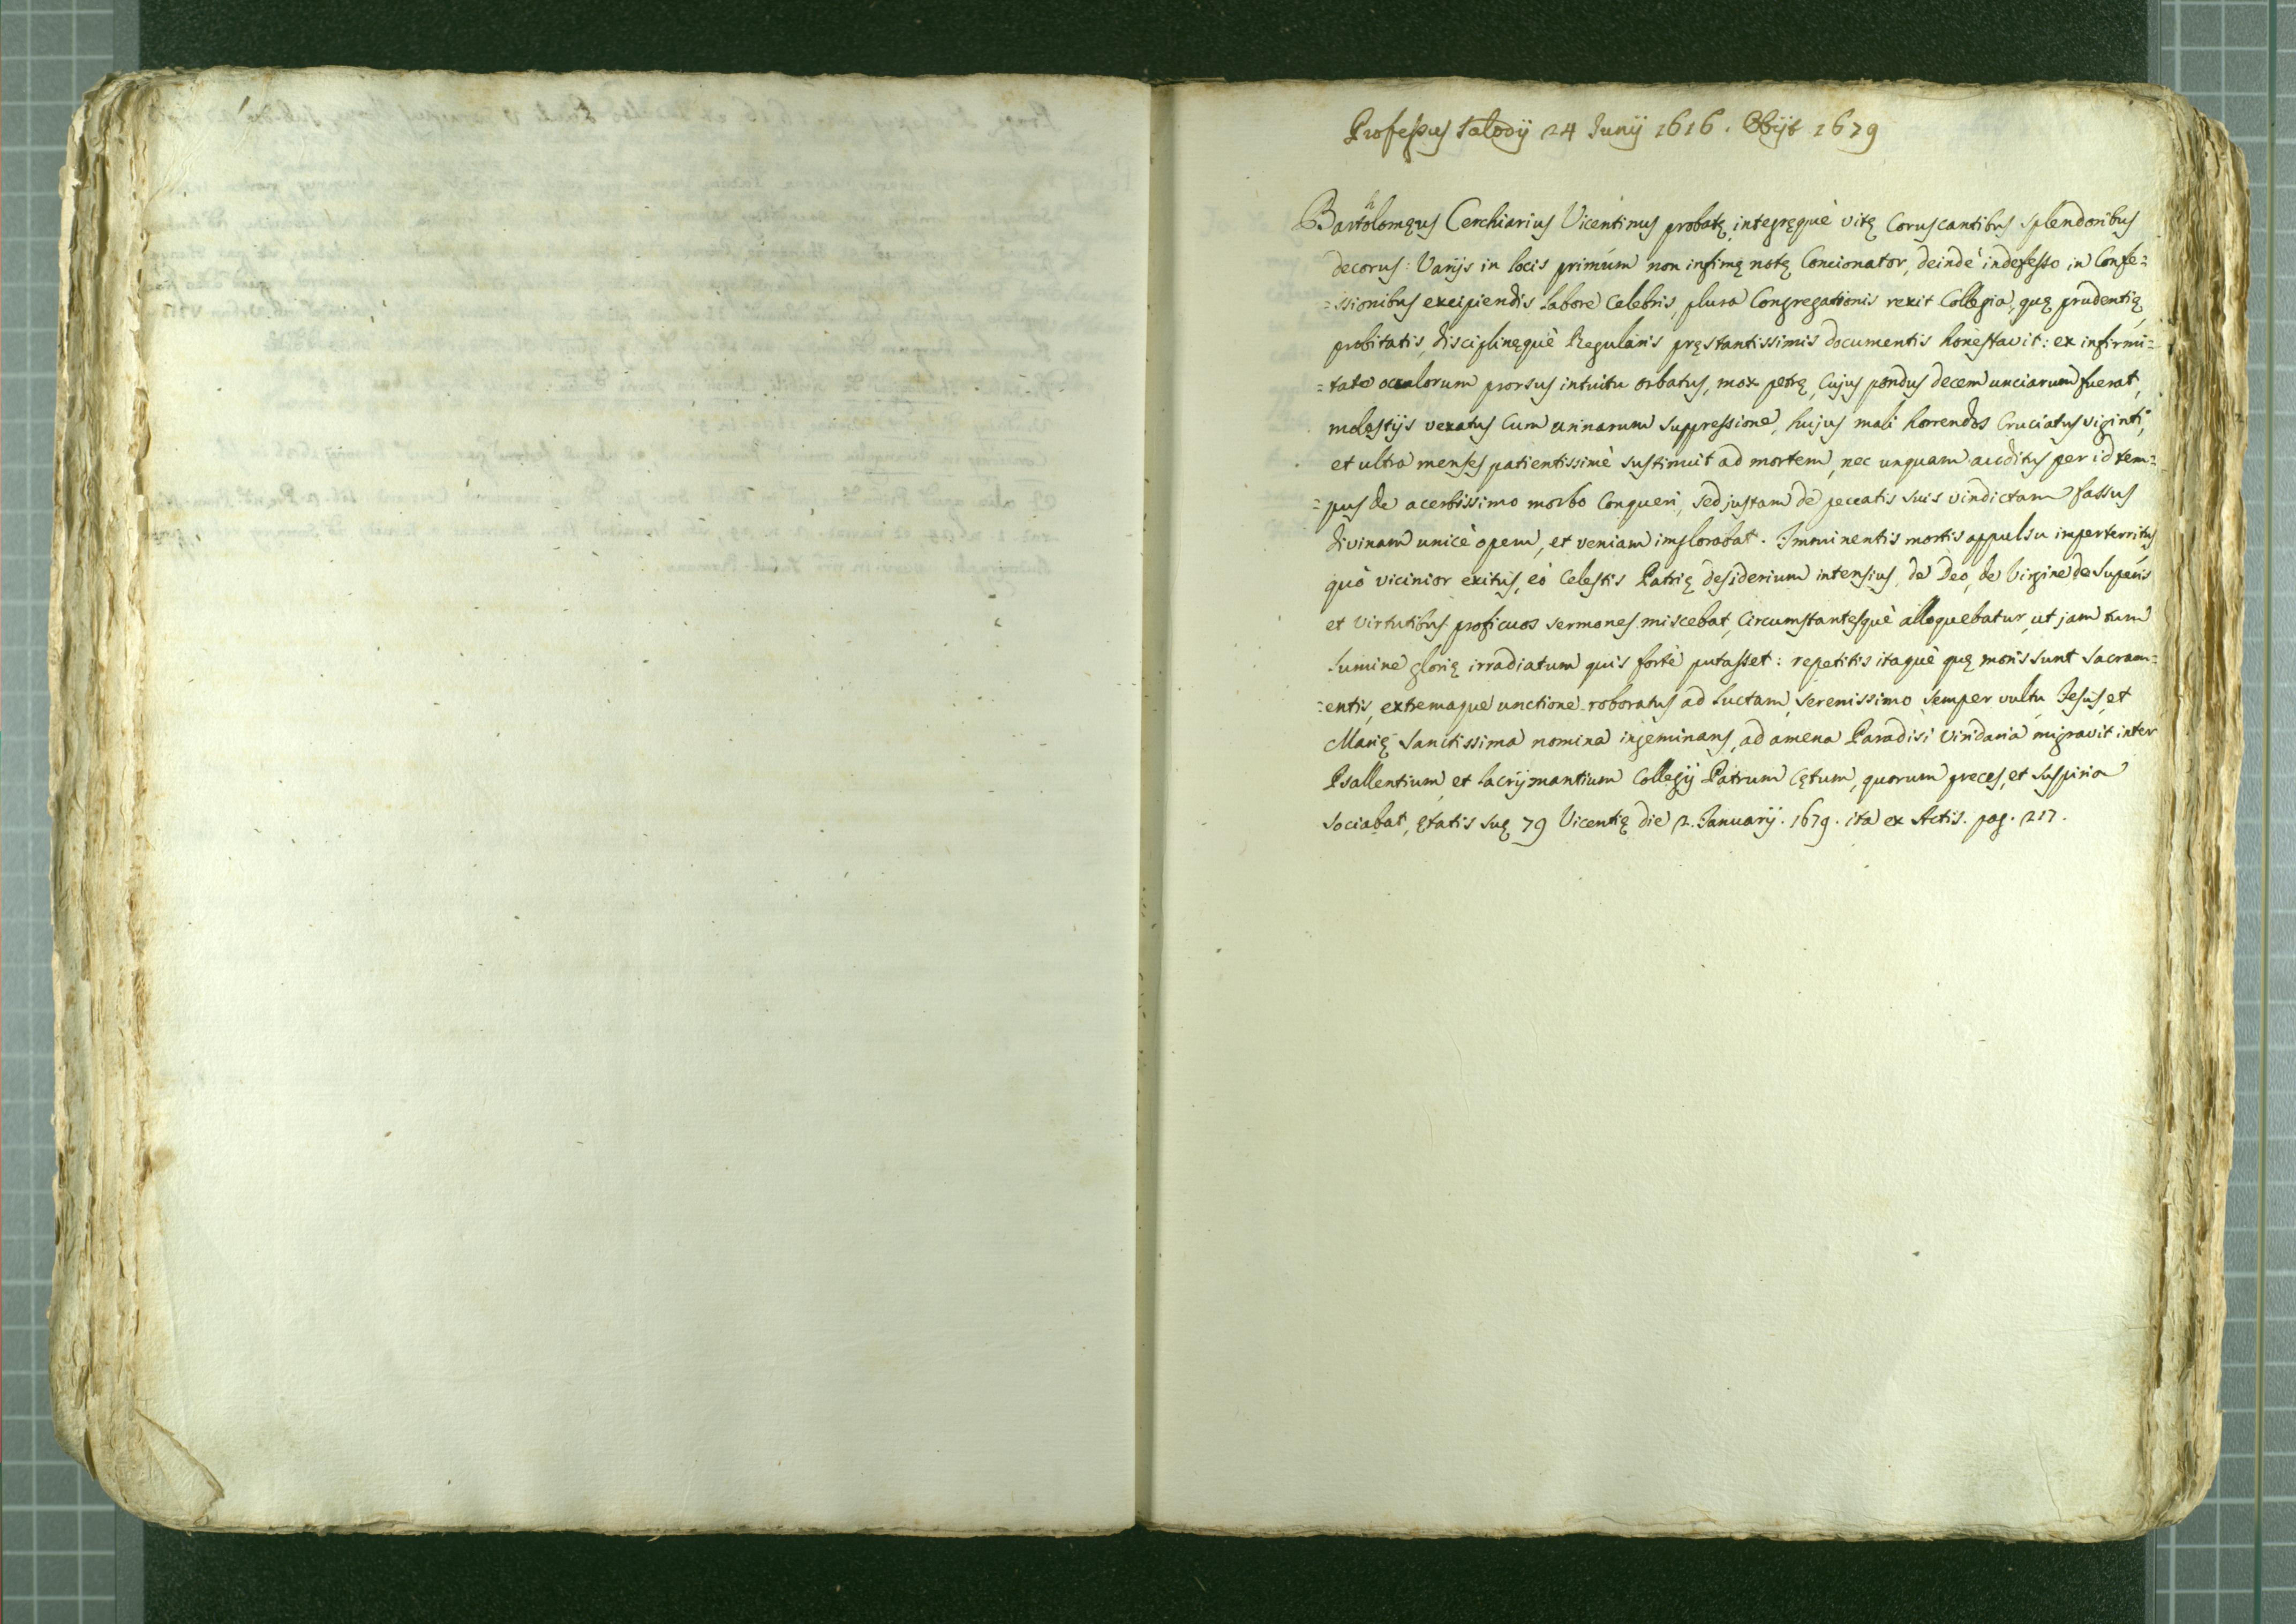 Professus Salodij 24 Junij 1616. Obijt 1679
Barthólomęus Cerchiarius Vicentinus probatę, integręquè vitę Coruscantibus splendoribus
decorus: Varijs in locis primùm non infimę notę Concionator, deindè indefesso in Confe=
=ssionibus excipiendis labore celebris, plura Congregationis rexit Collegia, quę prudentię,
probitatis, disciplinęquè Regularis pręstantissimis documentis honestavit: ex infirmi=
=tate oculorum prorsus intuitu orbatus, mox petrę, Cujus pondus decem unciarum fuerat,
molestijs vexatus Cum urinarum suppressione, hujus mali horrendos Cruciatus viginti,
et ultra menses patientissimè sustinuit ad mortem, nec unquam auditus per id tem=
=pus de acerbissimo morbo Conqueri, sed justam de peccatis suis vindictam fassus
divinam unicè opem, et veniam implorabat. Imminentis mortis appulsu imperterritus
quò vicinior exitus, eò Celestis Patrię desiderium intensius, de Deo, de Virgine de Superis
et virtutibus proficuos sermones miscebat, Circumstantesquè alloquebatur, ut jam tum
lumine glorię irradiatum quis fortè putasset: repetitis itaquè quę moris sunt Sacram=
=entis, extremaque unctione roboratus ad luctam, serenissimo semper vultu Jesus, et
Marię Sanctissima nomina ingeminans, ad amena Paradisi Viridaria migravit inter
Psallentium, et lacrijmantium Collegij Patrum Cętum, quorum preces, et suspiria
sociabat, ętatis suę 79 Vicentię die 2. Januarij. 1679. ita ex Actis. pag. 217.